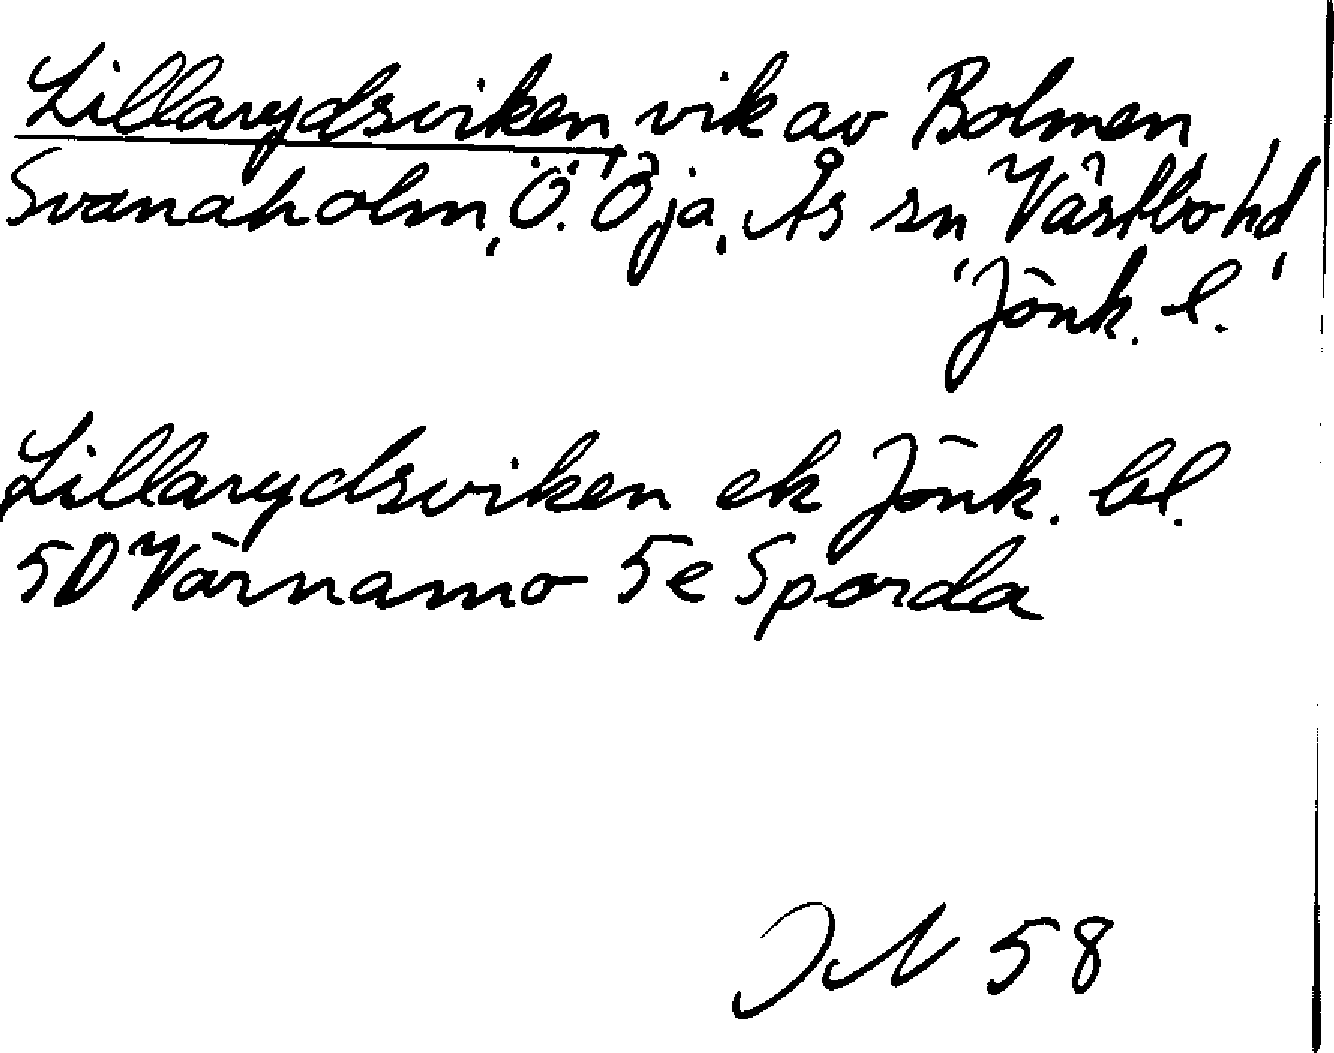 Lillarydsviken, vik av Bolmen,
Svanaholm, Ö. Öja, Ås sn, Västbo hd,
Jönk. l.
Lillarydsviken ek Jönk. bl.
5D Värnamo 5e Sporda
JN 58